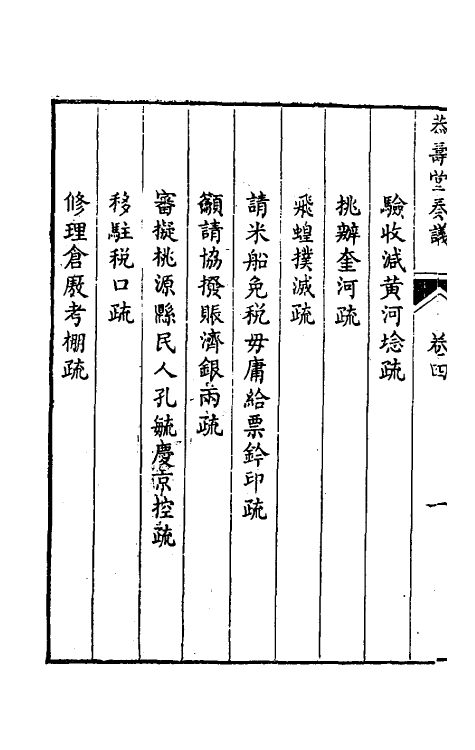 恭壽堂奏議 卷四 一
驗收減黃河埝疏
挑辦奎河疏
飛蝗撲滅疏
請米船免稅毋庸給票鈐印疏
籲請協撥賬濟銀兩疏
審擬桃源縣民人孔毓慶京控疏
移駐稅口疏
修理倉廒考棚疏